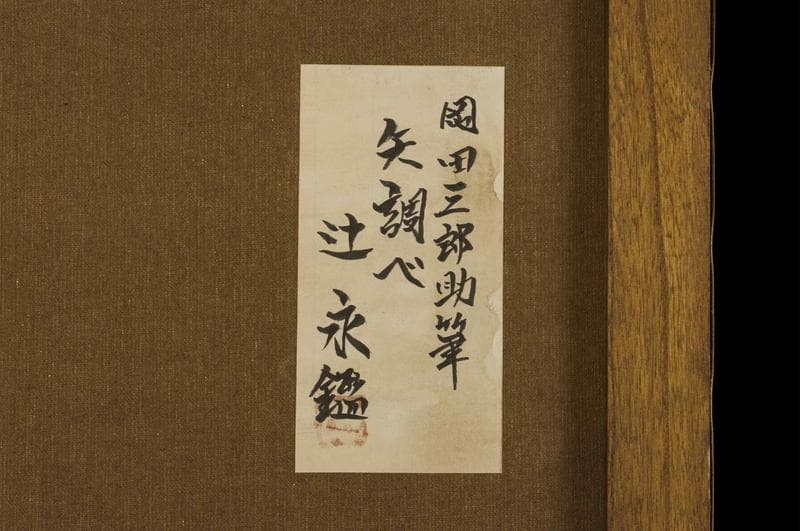 岡田三郎助筆
矢調べ
辻永鑑